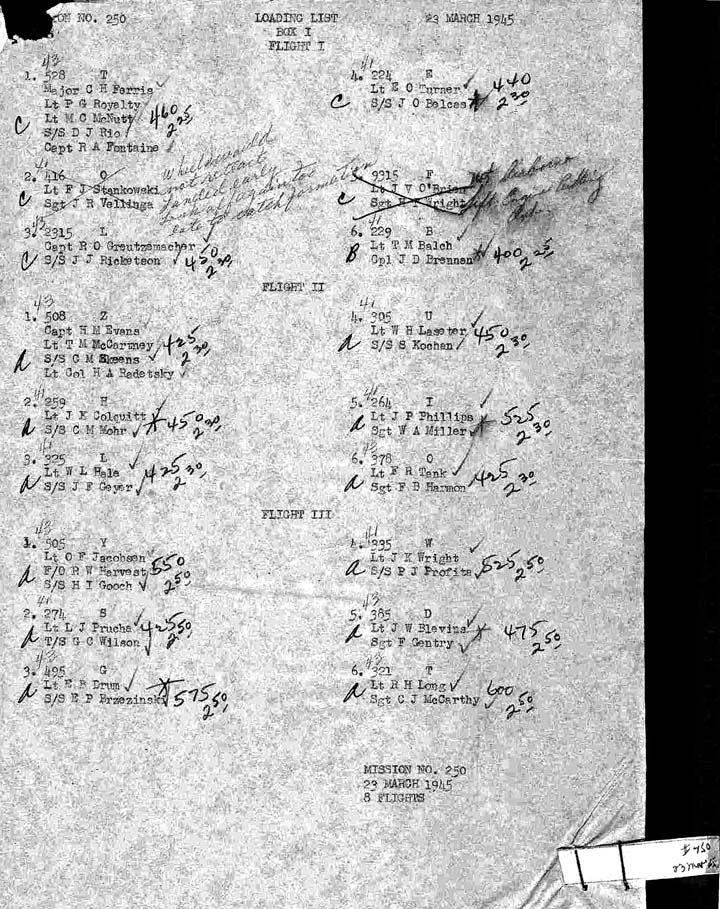 ON NO. 250 LOADING LIST 23 MARCH 1945
BOX I
FLIGHT I
43
1. 528 T
Major C H Ferris
Lt P G Royalty
Lt M C McNutt 460
C S/S D J Rio 2 25
Capt R A Fontaine
41
4. 224 E
Lt E O Turner 440
C S/S J O Belcas 2 30
41
2. 416 O
Lt F J Stankowski
C Sgt J R Vellinga
Wheels would
not retract
Landed early
took off again too
late to catch formation
5. 9915 F
Lt J V O'Brien
C Sgt Wright
not Airborne
left Engine
43
3. 2315 L
Capt R O Greutzemacher
C S/S J J Ricketson 450
2 30
41
6. 229 B
Lt T M Balch
B Cpl J D Brennan 400 2 25
FLIGHT II
43
1. 508 Z
Capt H M Evans
Lt T M McCartney 425
a S/S C M Skeens 2 30
Lt Col H A Radetsky
41
4. 305 U
Lt W H Lasster 450
a S/S S Kochan 2 30
41
2. 259 H
Lt J K Colquitt
a S/S C M Mohr 450 2 30
41
5. 264 I
Lt J P Phillips 525
a Sgt W A Miller 2 30
41
3. 325 L
Lt W L Hale 425 2 30
a S/S J F Geyer
43
6. 378 O
Lt F R Tank 425
a Sgt F B Harmon 2 30
FLIGHT III
43
1. 505 Y
Lt O F Jacobsen 550
a F/O R W Harvest
S/S H I Gooch 2 50
41
4. 335 W
Lt J K Wright 525 2 50
a S/S P J Profita
41
2. 274 S
Lt L J Prucha 425 50
a T/S G C Wilson 2
43
5. 385 D
a Lt J W Blevins 475
Sgt F Gentry 2 50
43
3. 495 G
a Lt E B Drum
S/S E P Brzezinski 575
2 50
43
6. 321 T
a Lt R H Long 600
Sgt C J McCarthy 2 50
MISSION NO. 250
23 MARCH 1945
8 FLIGHTS